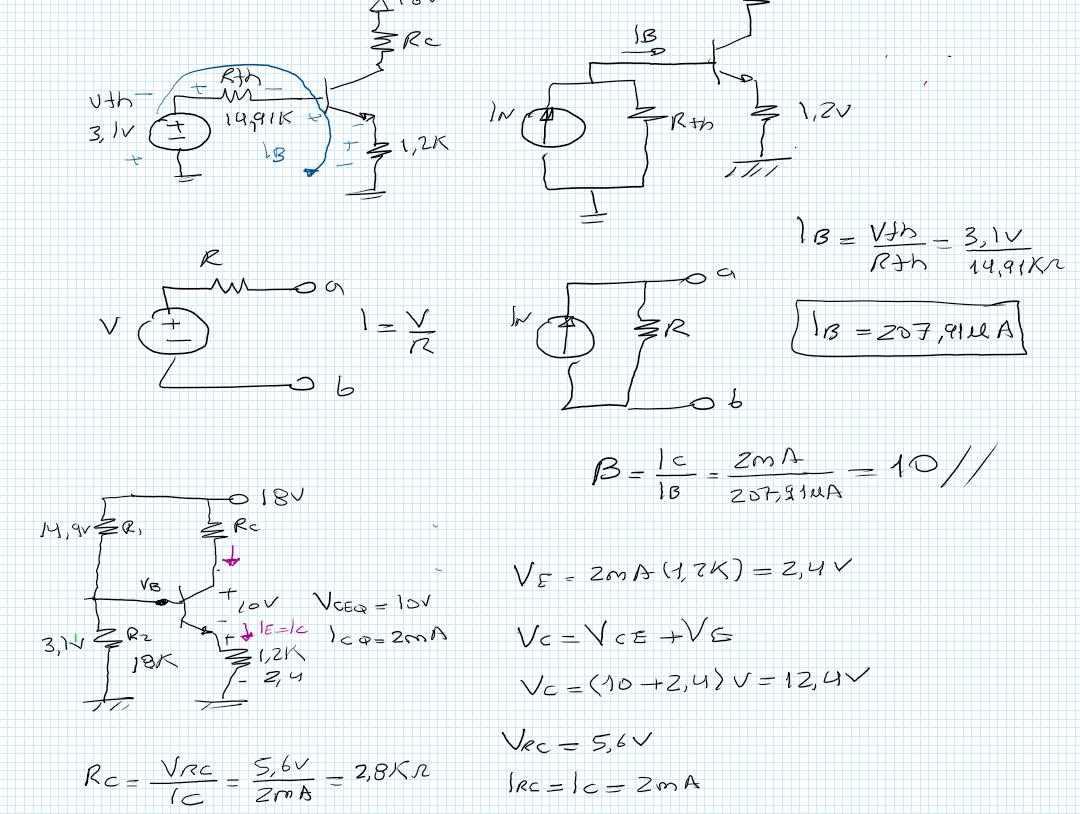 18V
Rc
Rth
Vth
3,1V
14,91K
IB
1,2K
IB
IN
Rth
1,2V
IB = Vth/Rth = 3,1V/14,91KΩ
IB = 207,91µA
R
a
V
b
I = V/R
IN
R
a
b
B = Ic/IB = 2mA/207,91µA = 10 //
18V
14,9V
R1
Rc
VB
+
10V
-
IE=Ic
3,1V
R2
18K
1,2K
2,4
VCEQ = 10V
ICQ = 2mA
VE = 2mA(1,2K) = 2,4V
Vc = VCE + VE
Vc = (10 + 2,4) V = 12,4V
VRC = 5,6V
IRC = Ic = 2mA
Rc = VRC/IC = 5,6V/2mA = 2,8KΩ